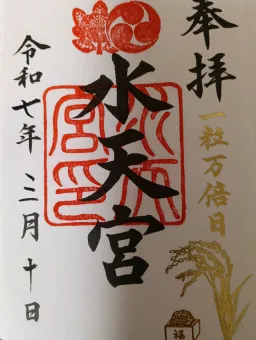 奉拝
一粒万倍日
水天宮
令和七年 三月 十日
福